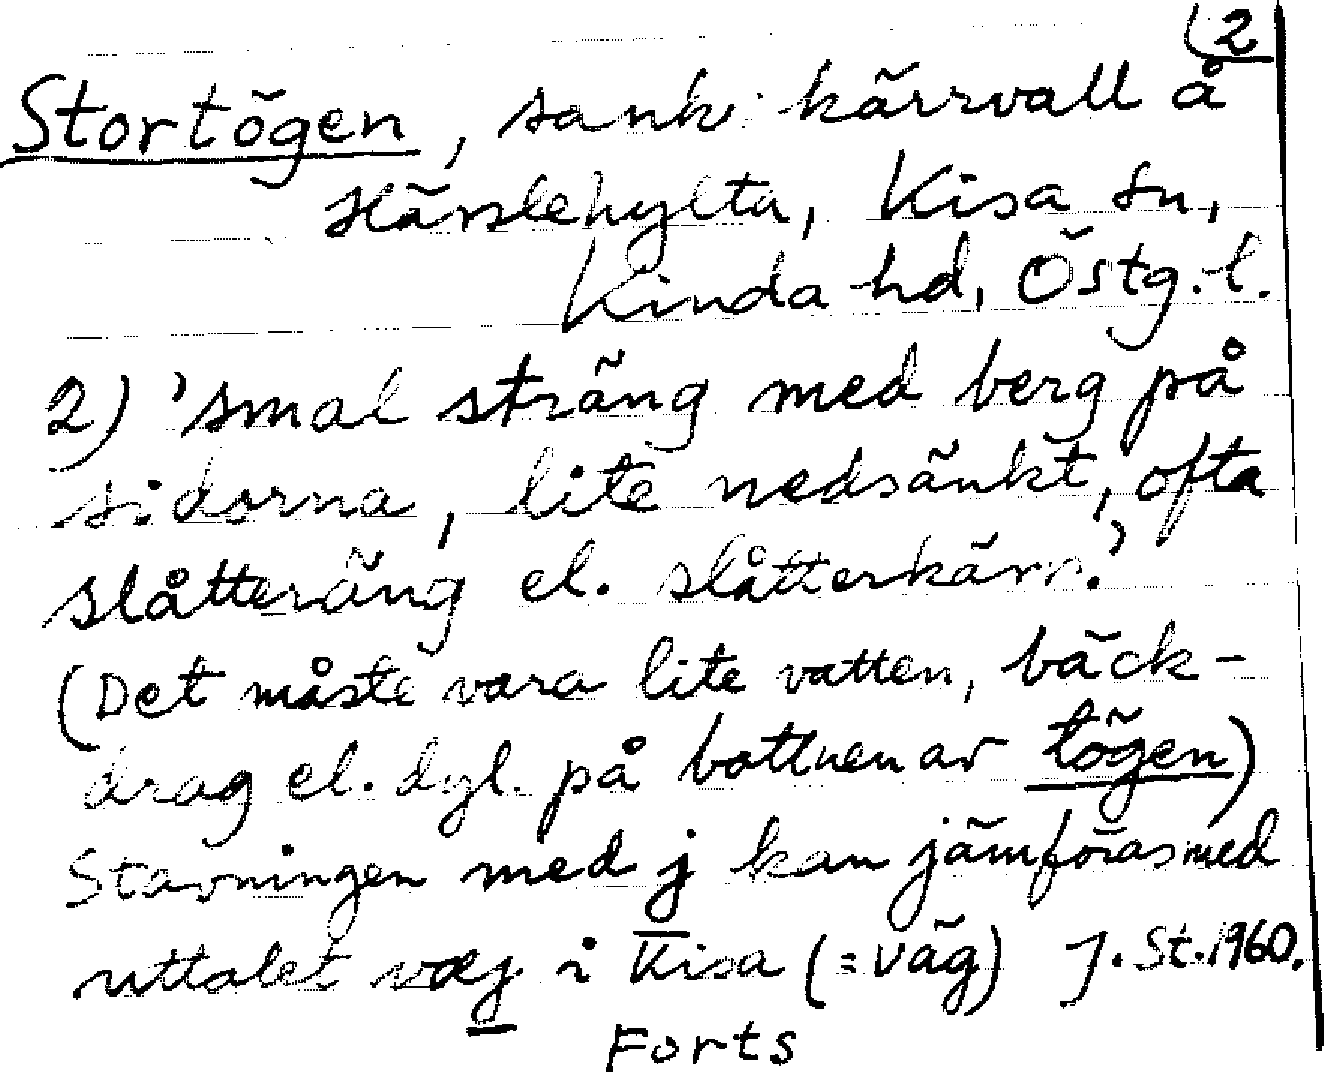 (2
Stortögen, sank kärrvall å
Härslehylta, Kisa sn,
Kinda hd, Östg.l.
2) 'smal sträng med berg på
sidorna, lite nedsänkt, ofta
slåtteräng el. slåtterkärr.'
(Det måste vara lite vatten, bäck-
drag el. dyl. på bottnen av tögen)
Stavningen med j kan jämföras med
uttalet væg i Kisa (= väg) J. St. 1960.
Forts